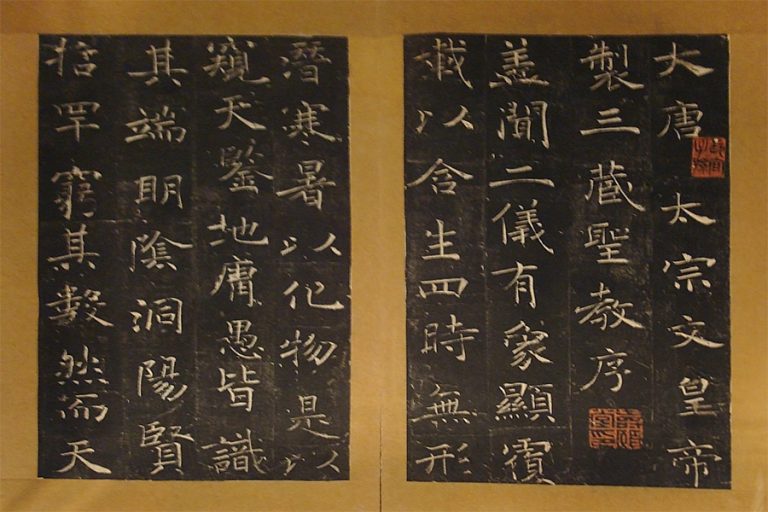 大唐太宗文皇帝
製三藏聖教序
盖聞二儀有象顯覆
載以含生四時無形
潛寒暑以化物是以
窺天鑒地庸愚皆識
其端明陰洞陽賢
哲罕窮其數然而天